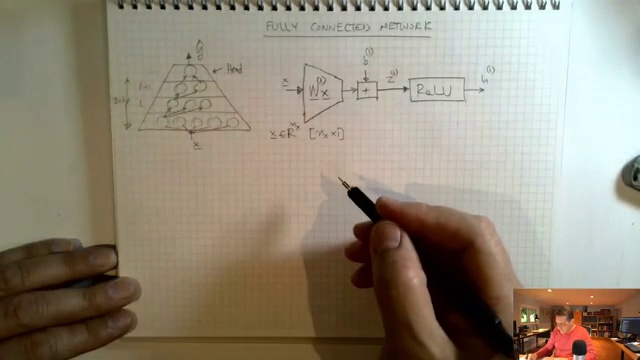 FULLY CONNECTED NETWORK
ŷ
Head
L
x
x
W^(1) x
b^(1)
+
z^(1)
ReLU
h^(1)
x ∈ R^nx [nx x 1]